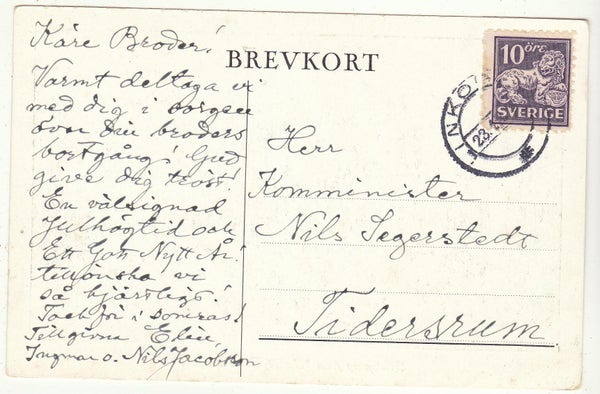 Käre Broder!
Varmt deltaga vi
med dig i sorgen
över Din broders
bortgång! Gud
give dig tröst!
En välsignad
Julhögtid och
Ett Gott Nytt År
tillönska vi
så hjärtligt!
Tack för i somras!
Tillgivna Elin,
Ingmar o. Nils Jacobsson
BREVKORT
Herr
Komminister
Nils Segerstedt
Tidersrum
10 ÖRE
SVERIGE
LINKÖ
23.